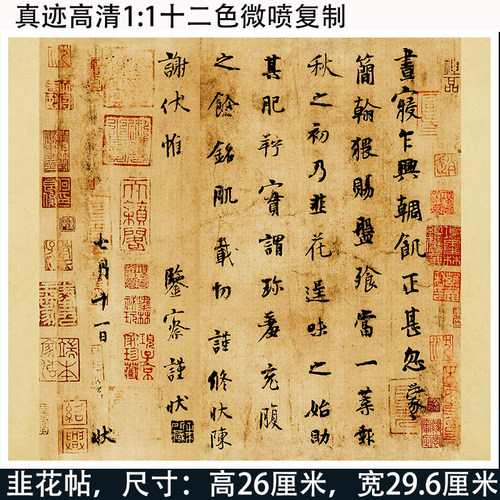 真迹高清1:1十二色微喷复制
晝寢乍興輖飢正甚忽
蒙
簡翰猥賜盤飧當一葉報
秋之初乃韭花逞味之始助
其肥羜實謂珍羞充腹
之餘銘肌載切謹脩狀陳
謝伏惟 鑒察謹狀
七月十一日
狀
天籟閣
項子京家珍藏
紹興
韭花帖，尺寸：高26厘米，宽29.6厘米